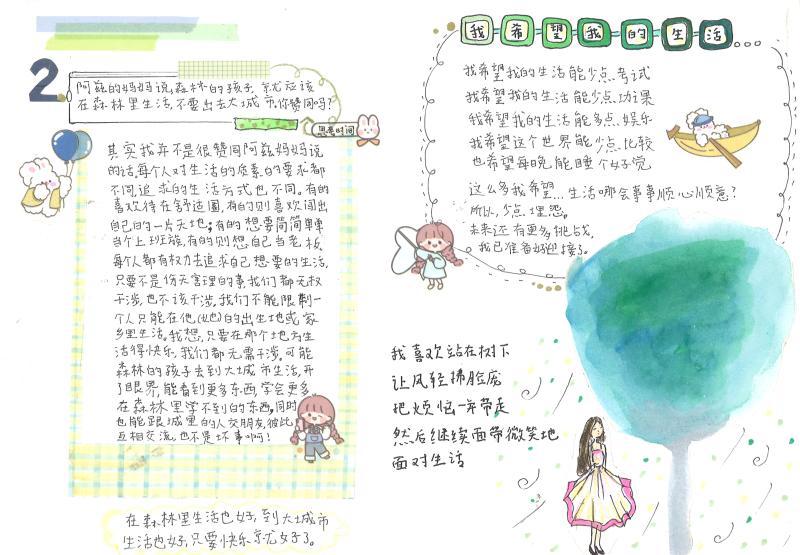 2
阿兹的妈妈说,森林的孩子,就应该
在森林里生活,不要出去大城市,你赞同吗?
思考时间
其实我并不是很赞同阿兹妈妈说
的话,每个人对生活的质素的要求都
不同,追求的生活方式也不同。有的
喜欢待在舒适圈,有的则喜欢闯出
自己的一片天地。有的想要简简单单
当个上班族,有的则想自己当老板。
每个人都有权力去追求自己想要的生活,
只要不是伤天害理的事我们都无权
干涉,也不该干涉。我们不能限制一
个人只能在他(她)的出生地或家
乡里生活。我想,只要在那个地方生
活得快乐,我们都无需干涉。可能
森林的孩子去到大城市生活,开
了眼界,能看到更多东西,学会更多
在森林里学不到的东西,同时
也能跟城里的人交朋友,彼此
互相交流,也不是坏事啊!
在森林里生活也好,到大城市
生活也好,只要快乐就好了。
我希望我的生活...
我希望我的生活能少点考试
我希望我的生活能少点功课
我希望我的生活能多点娱乐
我希望这个世界能少点比较
也希望每晚能睡个好觉
这么多我希望...生活哪会事事顺心顺意?
所以,少点埋怨。
未来还有更多挑战,
我已准备好迎接了。
我喜欢站在树下
让风轻拂脸庞
把烦恼一并带走
然后继续面带微笑地
面对生活